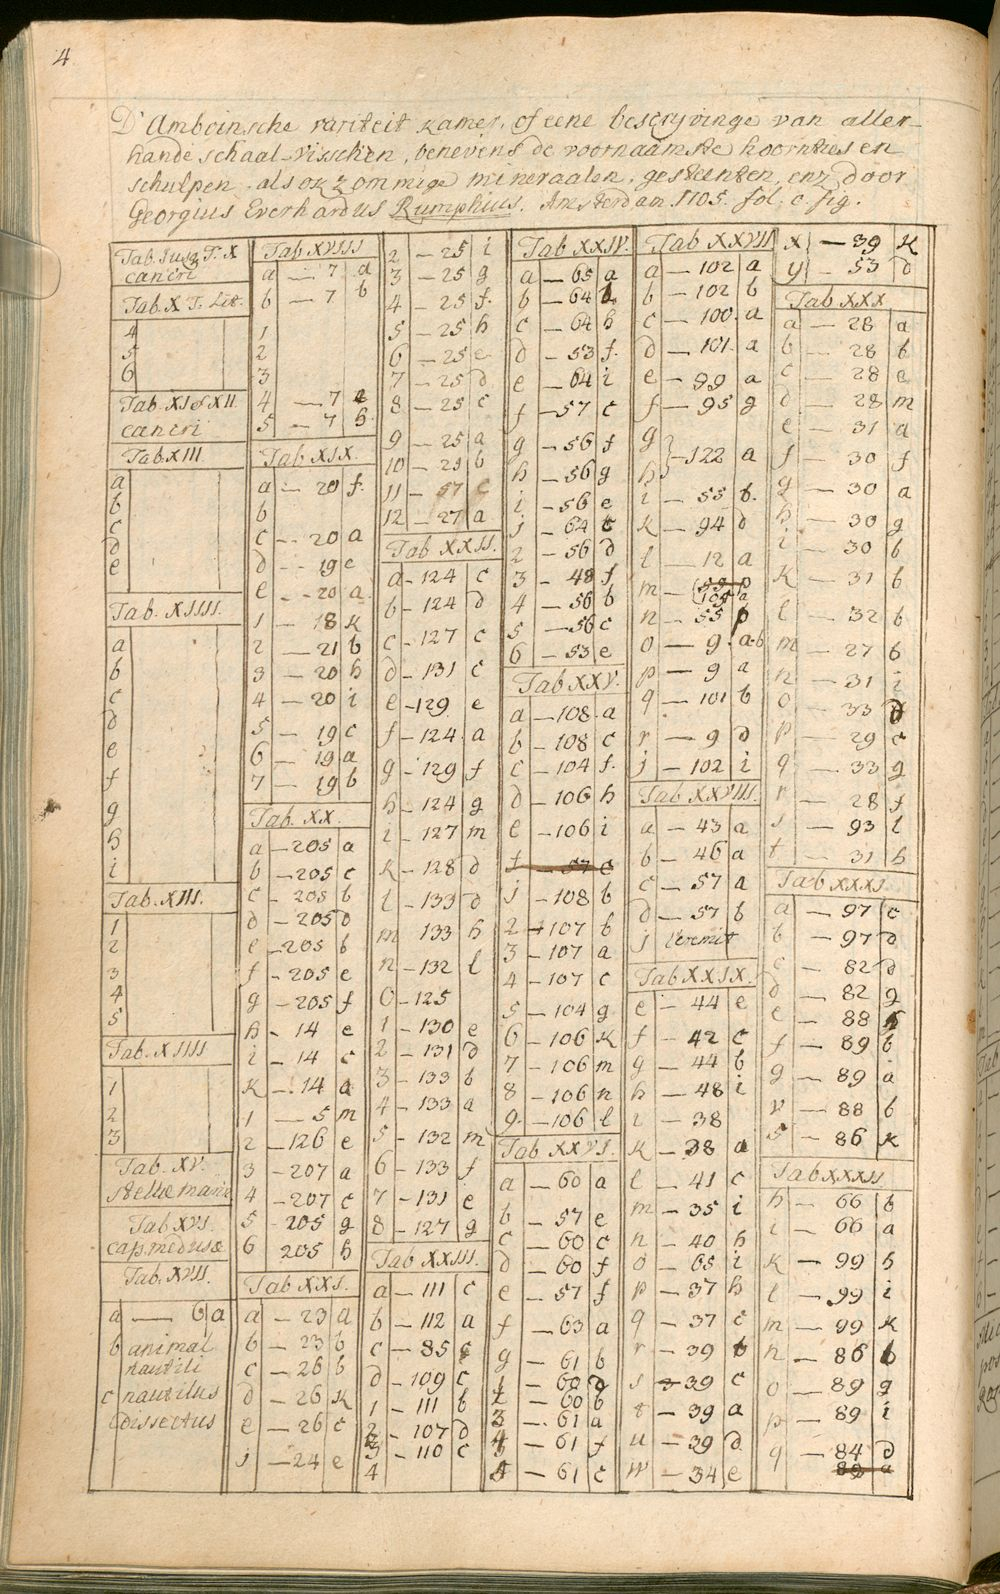 4
D'Amboinsche rariteit kamer, of eene bescryvinge van aller-
hande schaal-visschen, benevens de voornaamste hoornties en
schulpen, als ok zommige mineraalen, gesteenten, enz door
Georgius Everhardus Rumphius. Amsterdam 1705. fol. c. fig.
cancri
Tab. X T. Lit.
4
5
6
Tab. XI of XII.
cancri
Tab. XIII
a
b
c
d
e
Tab. XIIII.
a
b
c
d
e
f
g
h
i
Tab. XIII.
1
2
3
4
5
Tab. XIIII
1
2
3
Tab. XV.
stellæ marin
Tab XVI.
cap. medusæ
Tab. XVII.
a — 6 a
b animal
nautili
c nautilus
dissectus
Tab XVIII
a — 7 a
b — 7 b
1
2
3
4 — 7
5 — 7 h
Tab XIX.
a — 20 f.
b
c — 20 a
d — 19 e
e — 20 a
1 — 18 k
2 — 21 b
3 — 20 h
4 — 20 i
5 — 19 c
6 — 19 a
7 — 19 b
Tab. XX.
a — 205 a
b — 205 c
c — 205 b
d — 205 d
e — 205 b
f — 205 e
g — 205 f
h — 14 e
i — 14 c
k — 14 a
1 — 5 m
2 — 126 e
3 — 207 a
4 — 207 c
5 205 g
6 205 h
Tab XXI.
a — 23 a
b — 23 b
c — 26 b
d — 26 k
e — 26 c
1 — 24 e
2 — 25 i
3 — 25 g
4 — 25 f.
5 — 25 h
6 — 25 e
7 — 25 d
8 — 25 c
9 — 25 a
10 — 25 b
11 — 57 c
12 — 27 a
Tab XXII.
a — 124 c
b — 124 d
c — 127 c
d — 131 c
e — 129 e
f — 124 a
g — 129 f
h — 124 g
i — 127 m
k — 128 d
l — 133 d
m 133 h
n — 132 l
o — 125
1 — 130 e
2 — 131 d
3 — 133 b
4 — 133 a
5 — 132 m
6 — 133 f
7 — 131 e
8 — 127 g
Tab XXIII.
a — 111 c
b — 112 a
c — 85
d — 109 c
1 — 111 b
2 — 107 d
3 — 110 c
4
Tab XXIV.
a — 65 a
b — 64
c — 64 h
d — 53 f.
e — 64 i
f — 57 c
g — 56 f
h — 56 g
i — 56 e
1 — 64 c
2 — 56 d
3 — 48 f
4 — 56 b
5 — 56 c
6 — 53 e
Tab XXV.
a — 108 a
b — 108 c
c — 104 f.
d — 106 h
e — 106 i
f — 57 c
1 — 108 b
2 — 107 b
3 — 107 a
4 — 107 c
5 — 104 g
6 — 106 k
7 — 106 m
8 — 106 n
9 — 106 l
Tab XXVI.
a — 60 a
b — 57 e
c — 60 c
d — 60 f
e — 57 f
f — 63 a
g — 61 b
1 — 60 d
2 — 60 b
3 — 61 a
4 — 61 f
5 — 61 c
Tab XXVII
a — 102 a
b — 102 b
c — 100 a
d — 101 a
e — 99 a
f — 95 g
g
h — 122 a
i — 55 b.
k — 94 d
l — 12 a
m — 55 p
105 a
n — 55 b
o — 9 a-b
p — 9 a
q — 101 b
r — 9 d
s — 102 i
Tab XXVIII.
a — 43 a
b — 46 a
c — 57 a
d — 57 b
1 l'eremit
Tab XXIX.
e — 44 e
f — 42 c
g — 44 b
h — 48 i
i — 38
k — 38 a
l — 41 c
m — 35 i
n — 40 h
o — 65 i
p — 37 h
q — 37 c
r — 39 b
s — 39 c
t — 39 a
u — 39 d
w — 34 e
x — 39 k
y — 53 d
Tab XXX
a — 28 a
b — 28 b
c — 28 e
d — 28 m
e — 31 a
f — 30 f
g — 30 a
h — 30 g
i — 30 b
k — 31 b
l — 32 b
m — 27 b
n — 31 i
o — 33 d
p — 29 c
q — 33 g
r — 28 f
s — 93 l
t — 31 h
Tab XXXI.
a — 97 c
b — 97 d
c — 82 d
d — 82 g
e — 88
f — 89 b
g — 89 a
r — 88 b
s — 86 k
Tab XXXII
h — 66 b
i — 66 a
k — 99 h
l — 99 i
m — 99 k
n — 86 b
o — 89 g
p — 89 i
q — 84 d
89 a